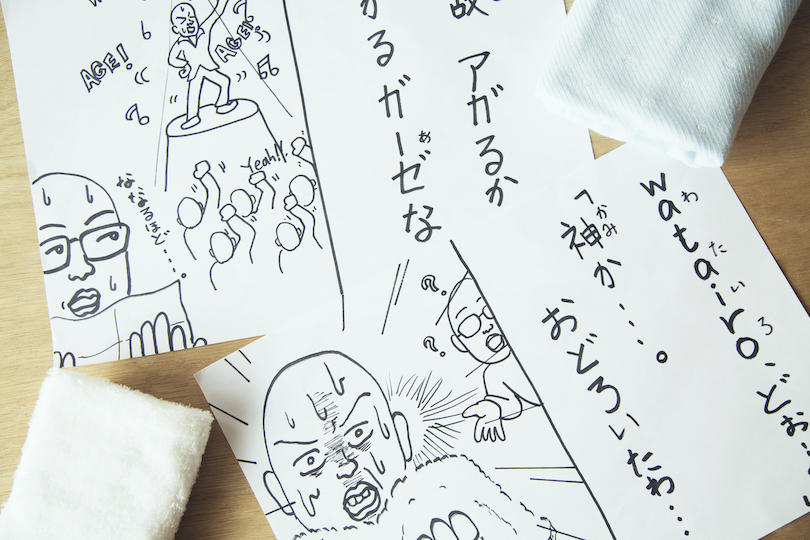 AGE!
AGE!
Yeah!!
な
なるほど…。
アガるか
る ガーゼな
あ
?
?
wata.iro. どお…
わたいろ
「神か…。
かみ
おどろいたわ…